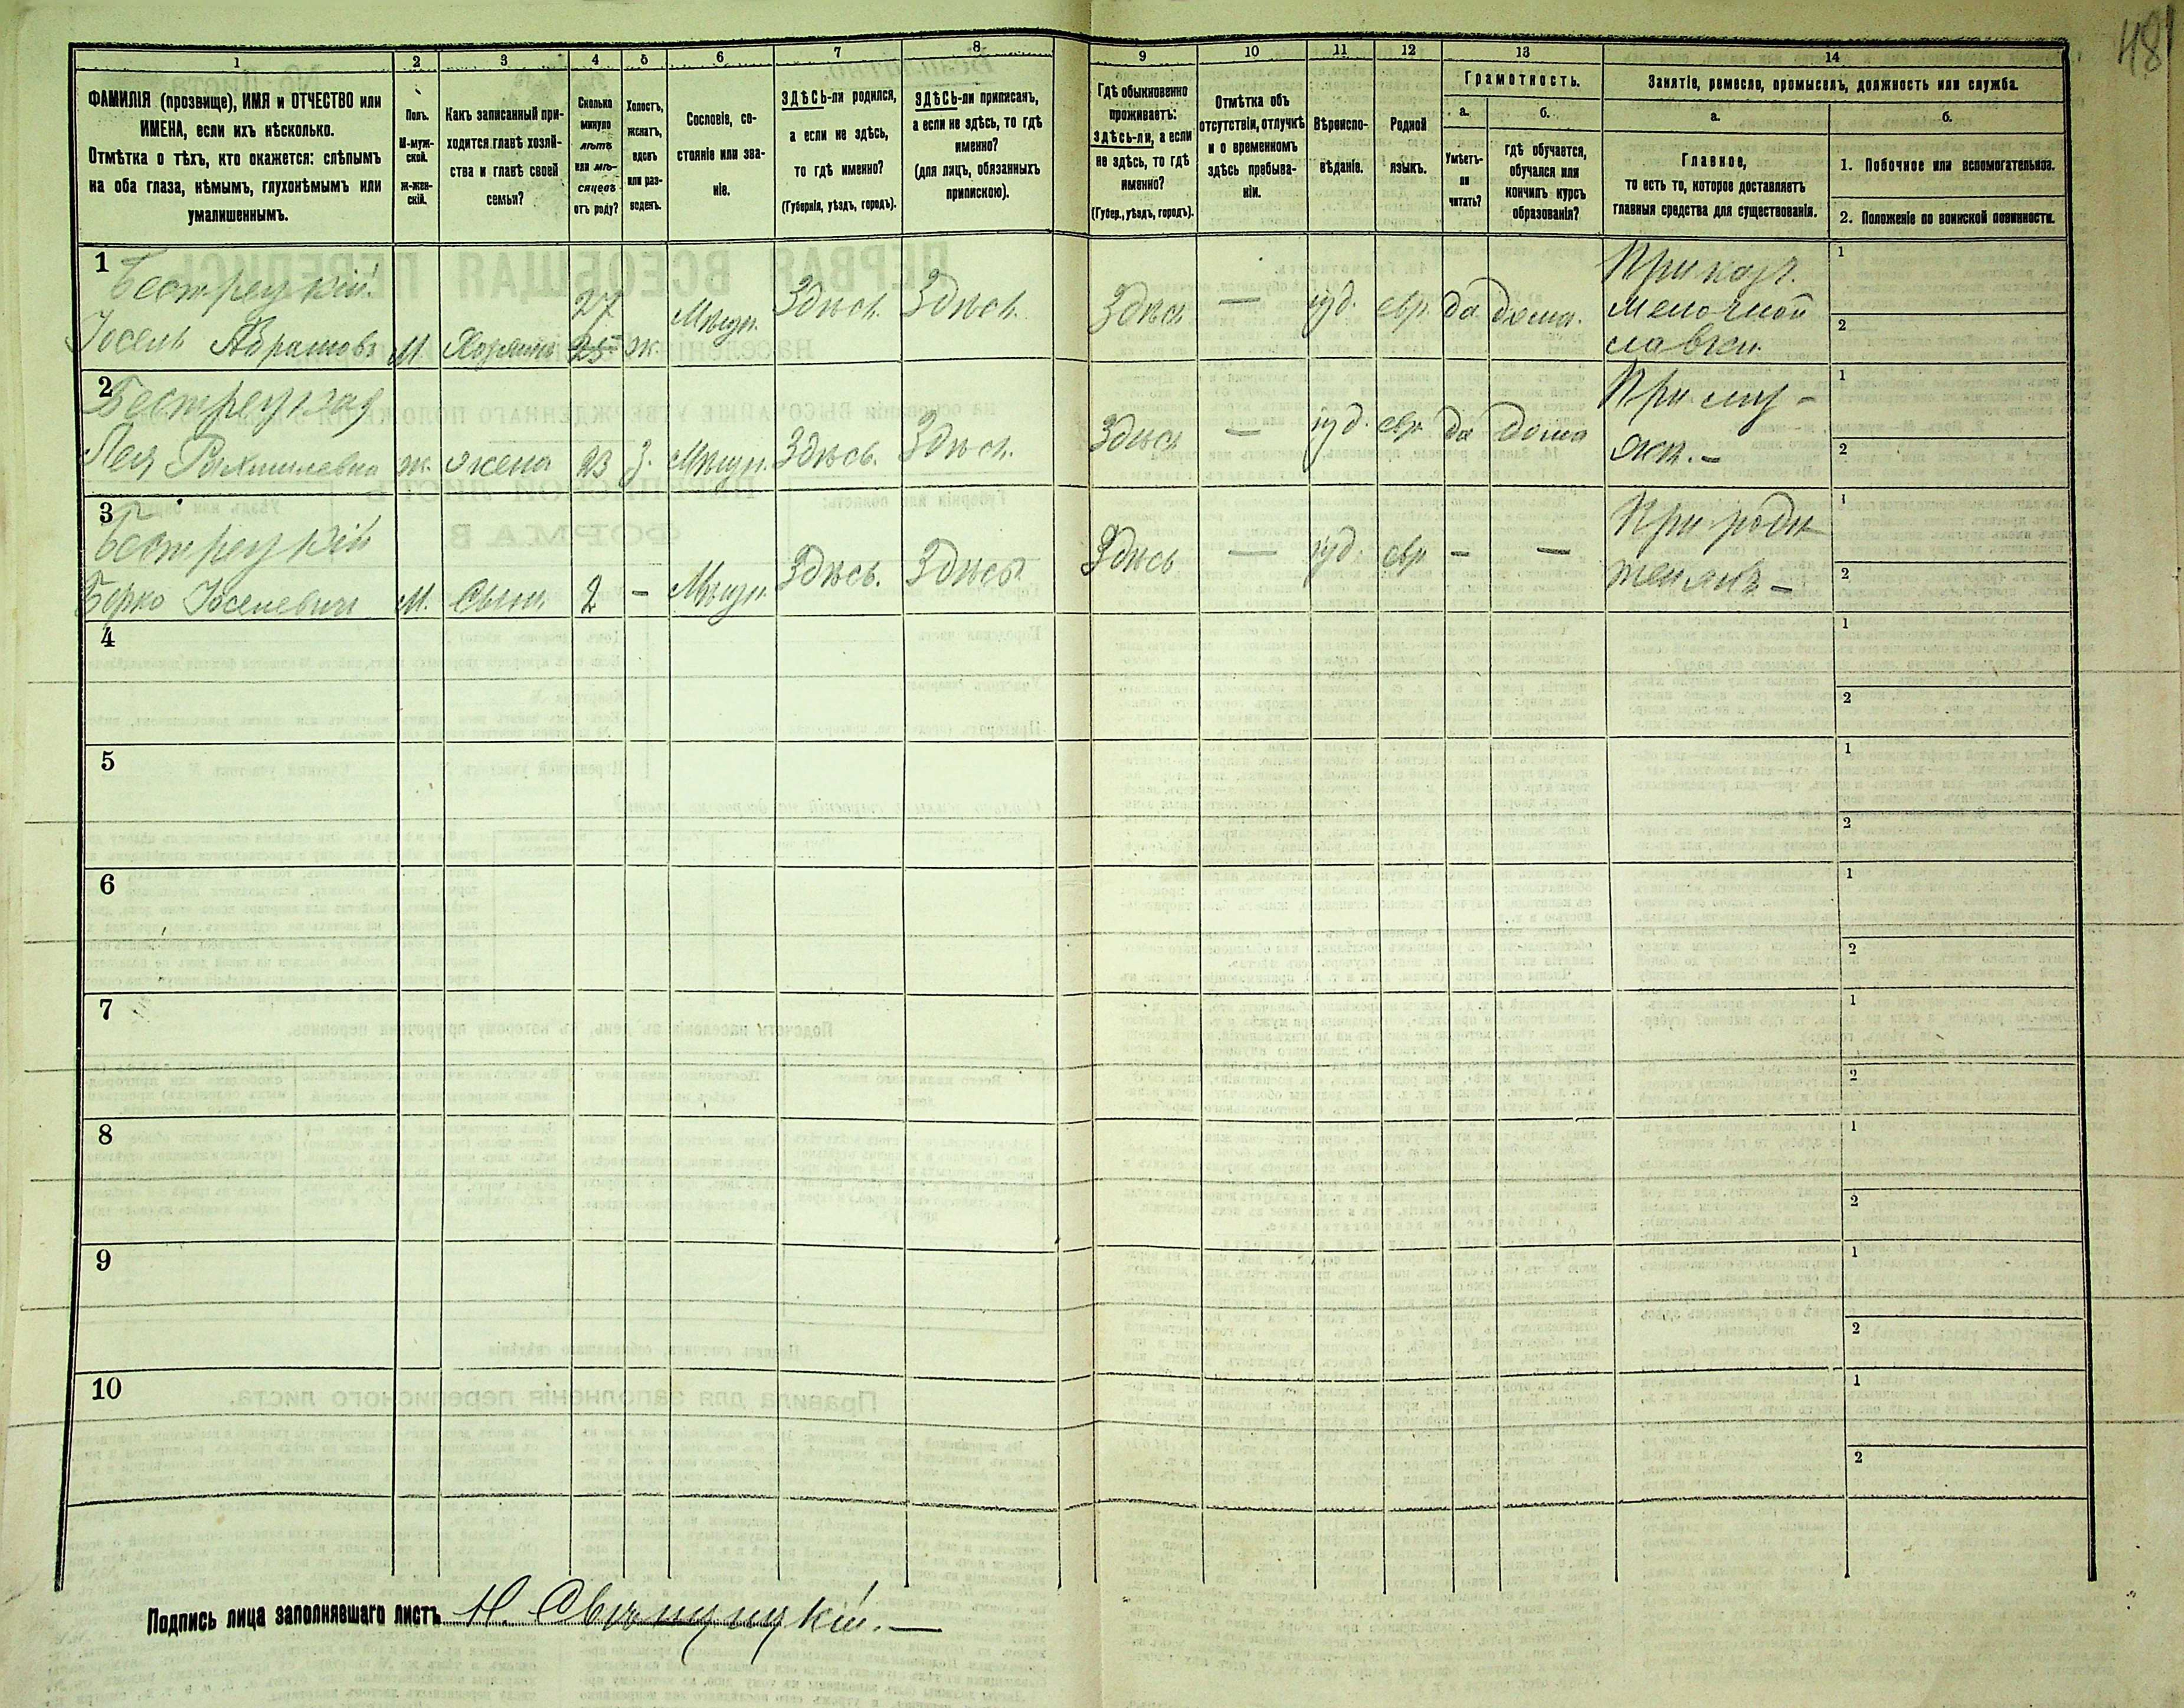 481
1 2 3 4 5 6 7 8 9 10 11 12 13 14
ФАМИЛІЯ (прозвище), ИМЯ и ОТЧЕСТВО или
ИМЕНА, если ихъ нѣсколько.
Отмѣтка о тѣхъ, кто окажется: слѣпымъ
на оба глаза, нѣмымъ, глухонѣмымъ или
умалишеннымъ.
Полъ.
М-муж-
ской.
ж-жен-
скій.
Какъ записанный при-
ходится главѣ хозяй-
ства и главѣ своей
семьи?
Сколько
минуло
лѣтъ
или мѣ-
сяцевъ
отъ роду?
Холостъ,
женатъ,
вдовъ
или раз-
веденъ.
Сословіе, со-
стояніе или зва-
ніе.
ЗДѢСЬ-ли родился,
а если не здѣсь,
то гдѣ именно?
(Губернія, уѣздъ, городъ).
ЗДѢСЬ-ли приписанъ,
а если не здѣсь, то гдѣ
именно?
(для лицъ, обязанныхъ
припискою).
Гдѣ обыкновенно
проживаетъ:
здѣсь-ли, а если
не здѣсь, то гдѣ
именно?
(Губер., уѣздъ, городъ).
Отмѣтка объ
отсутствіи, отлучкѣ
и о временномъ
здѣсь пребыва-
ніи.
Вѣроиспо-
вѣданіе.
Родной
языкъ.
Грамотность.
а. б.
Умѣетъ-
ли
читать?
гдѣ обучается,
обучался или
кончилъ курсъ
образованія?
Занятіе, ремесло, промыселъ, должность или служба.
а. б.
Главное,
то есть то, которое доставляетъ
главныя средства для существованія.
1. Побочное или вспомогательное.
2. Положеніе по воинской повинности.
1
Бестрецкій
Іосель Абрамовъ М. Хозяинъ 27 25 ж. Мѣщ. Здѣсь. Здѣсь. Здѣсь — іуд. евр. да дома.
мелочной
лавки.
1
2
2
Бестрецкая
Лея Рахмилевна ж. жена 23 з. Мѣщ. Здѣсь. Здѣсь. Здѣсь — іуд. евр. да дома
При му-
жѣ. —
1
2
3
Бестрецкій
Берко Іоселевичъ М. Сынъ. 2 — Мѣщ. Здѣсь. Здѣсь. Здѣсь — іуд. евр. — —
При роди-
теляхъ —
1
2
4
1
2
5
1
2
6
1
2
7
1
2
8
1
2
9
1
2
10
1
2
Подпись лица заполнявшаго листъ